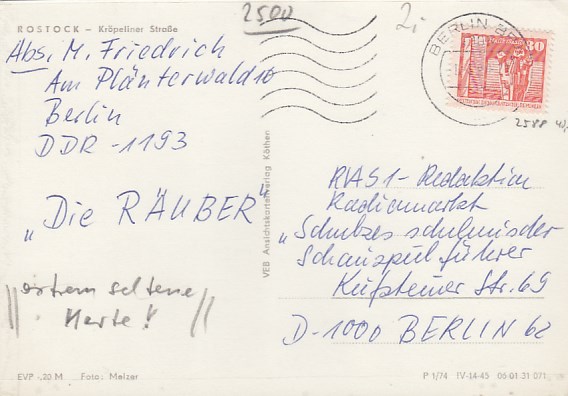 ROSTOCK — Kröpeliner Straße
Abs. M. Friedrich
Am Plänterwald 10
Berlin
DDR-1193
„Die RÄUBER“
extrem seltene
Karte!
2500
BERLIN
30
2588
VEB Ansichtskartenverlag Köthen
RIAS 1-Redaktion
Radiomarkt
„Schulzes schulmeister
Schauspielführer
Kufsteiner Str. 69
D-1000 BERLIN 62
EVP -,20 M Foto: Melzer
P 1/74 IV-14-45 06 01 31 071